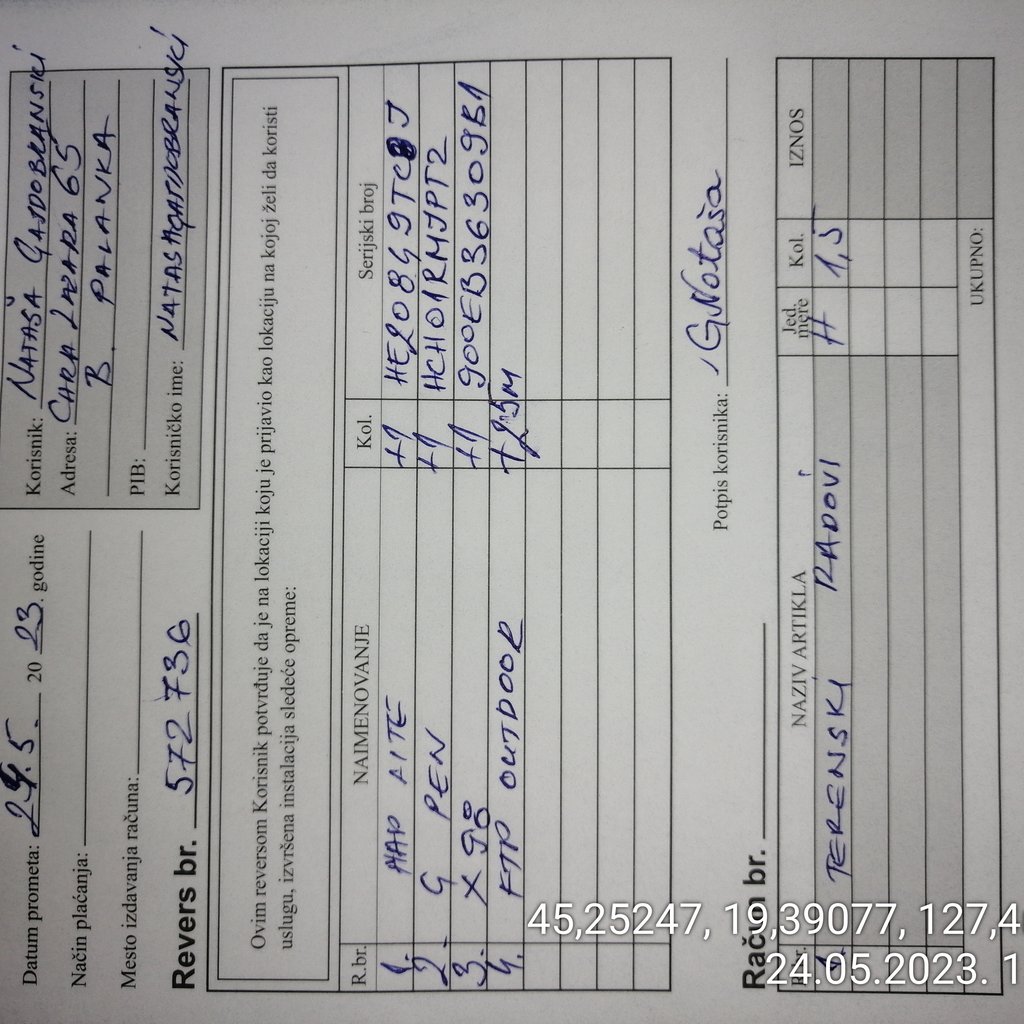 Datum prometa: 24.5. 2023. godine
Način plaćanja:
Mesto izdavanja računa:
Revers br. 572736
Korisnik: NATAŠA GAJDOBRANSKI
Adresa: CARA LAZARA 65
B. PALANKA
PIB:
Korisničko ime: NATASAGAJDOBRANSKI
Ovim reversom Korisnik potvrđuje da je na lokaciji koju je prijavio kao lokaciju na kojoj želi da koristi
uslugu, izvršena instalacija sledeće opreme:
R.br. NAIMENOVANJE Kol. Serijski broj
1. HAP LITE +1
2. G PEN +1 HCH01RMJPT2
3. X 98 +1 900EB36309B1
4. FTP OUTDOOR +25m
Potpis korisnika: GNataša
Račun br.
R.br. NAZIV ARTIKLA Jed. mere Kol. IZNOS
1. TERENSKI RADOVI H 1,5
UKUPNO:
45,25247, 19,39077, 127,4
24.05.2023. 1